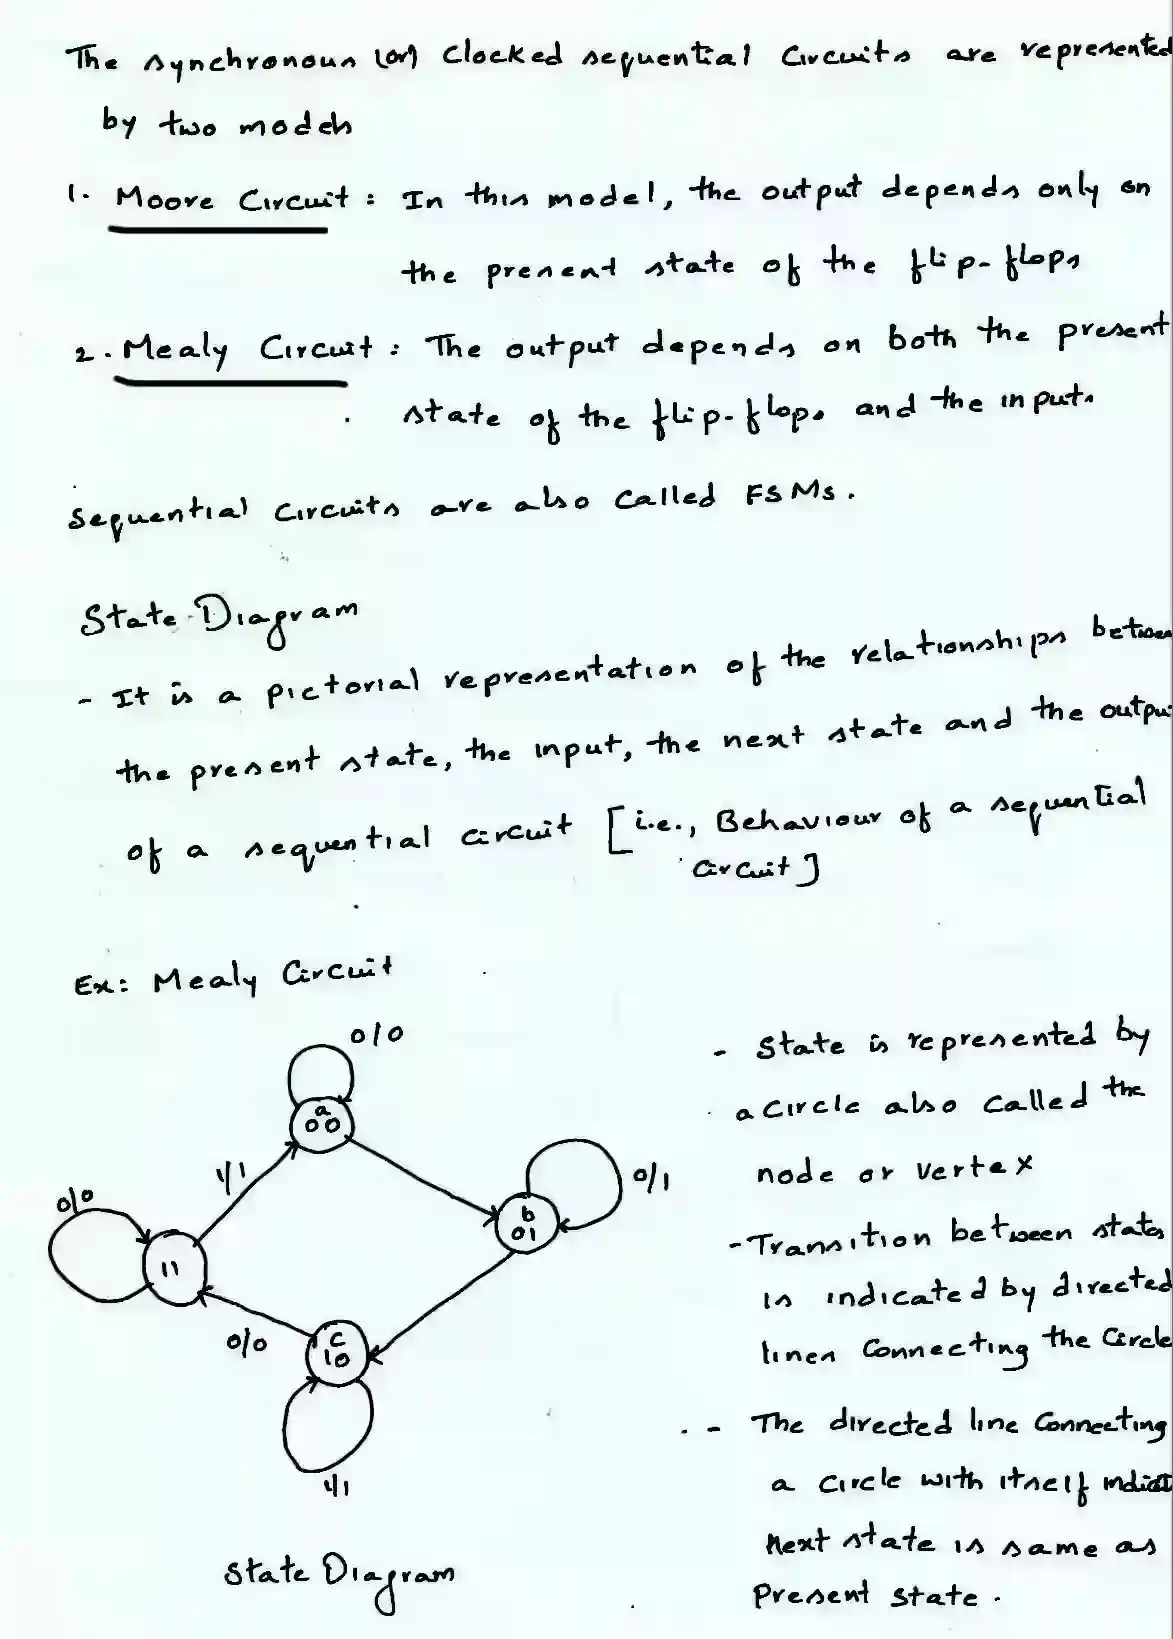 The synchronous (or) Clocked sequential Circuits are represented
by two models
1. Moore Circuit : In this model, the output depends only on
the present state of the flip-flops
2. Mealy Circuit : The output depends on both the present
state of the flip-flops and the inputs
Sequential circuits are also called FSMs.
State Diagram
- It is a pictorial representation of the relationships between
the present state, the input, the next state and the outpu
of a sequential circuit [i.e., Behaviour of a sequential
circuit]
Ex: Mealy Circuit
0/0
a
00
1/1
0/0
b
01
0/1
11
0/0
c
10
1/1
State Diagram
- State is represented by
a Circle also called the
node or vertex
- Transition between states
is indicated by directed
lines Connecting the Circle
- The directed line Connecting
a circle with itself indicat
Next state is same as
Present state.